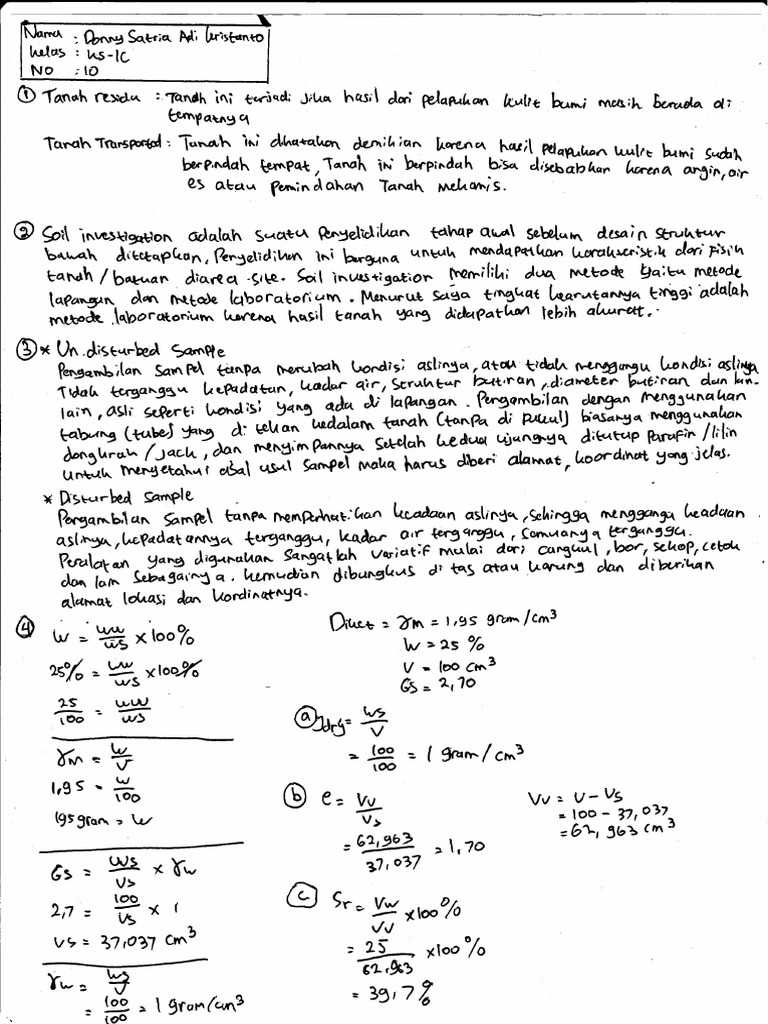 Nama : Donny Satria Adi Kristanto
Kelas : KS-1C
NO : 10
① Tanah residu : Tanah ini terjadi jika hasil dari pelapukan kulit bumi masih berada di
tempatnya
Tanah Transported : Tanah ini dikatakan demikian karena hasil pelapukan kulit bumi sudah
berpindah tempat, Tanah ini berpindah bisa disebabkan karena angin, air
es atau pemindahan Tanah Mekanis.
② Soil investigation adalah suatu Penyelidikan tahap awal sebelum desain struktur
bawah ditetapkan, Penyelidiken ini berguna untuk mendapatkan karakseristik dari fisik
tanah / batuan diarea site. Soil investigation memiliki dua metode yaitu metode
lapangan dan metode laboratorium. Menurut saya tingkat keakuratannya tinggi adalah
metode laboratorium karena hasil tanah yang didapatkan lebih akurat.
③ * Un.disturbed Sample
Pengambilan Sampel tanpa merubah kondisi aslinya, atau tidak menggangu kondisi aslinya
Tidak terganggu kepadatan, kadar air, struktur butiran, diameter butiran dan lain-
lain, asli seperti kondisi yang ada di lapangan. Pengambilan dengan menggunakan
tabung (tube) yang di tekan kedalam tanah (tanpa di pukul) biasanya menggunakan
dongkrak / jack, dan menyimpannya setelah kedua ujungnya ditutup parafin / lilin
untuk mengetahui asal usul sampel maka harus diberi alamat, koordinat yang jelas.
* Disturbed sample
Pengambilan Sampel tanpa memperhatikan keadaan aslinya, sehingga mengganggu keadaan
aslinya, kepadatannya terganggu, kadar air terganggu, semuanya terganggu.
Peralatan yang digunakan sangatlah variatif mulai dari cangkul, bor, sekop, cetok
dan lain sebagainya. kemudian dibungkus di tas atau karung dan diberikan
alamat lokasi dan kordinatnya.
④ W = ww/ws × 100%
25% = ww/ws × 100%
25/100 = ww/ws
γm = W/V
1,95 = W/100
195 gram = W
Gs = Ws/Vs × γw
2,7 = 100/Vs × 1
Vs = 37,037 cm³
γw = Ws/V
= 100/100 = 1 gram/cm³
Diket = γm = 1,95 gram/cm³
W = 25 %
V = 100 cm³
Gs = 2,70
ⓐ γdry = Ws/V
= 100/100 = 1 gram/cm³
ⓑ e = Vv/Vs
= 62,963/37,037 = 1,70
Vv = V - Vs
= 100 - 37,037
= 62,963 cm³
ⓒ Sr = Vw/Vv × 100%
= 25/62,963 × 100%
= 39,7%